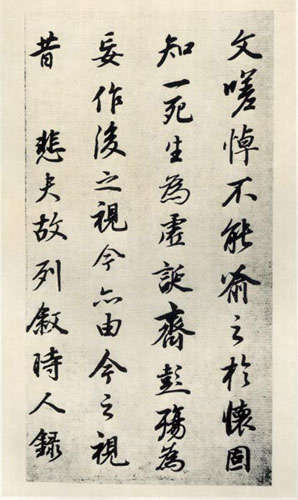 文嗟悼不能喻之於懷固
知一死生為虛誕齊彭殤為
妄作後之視今亦由今之視
昔悲夫故列敘時人錄